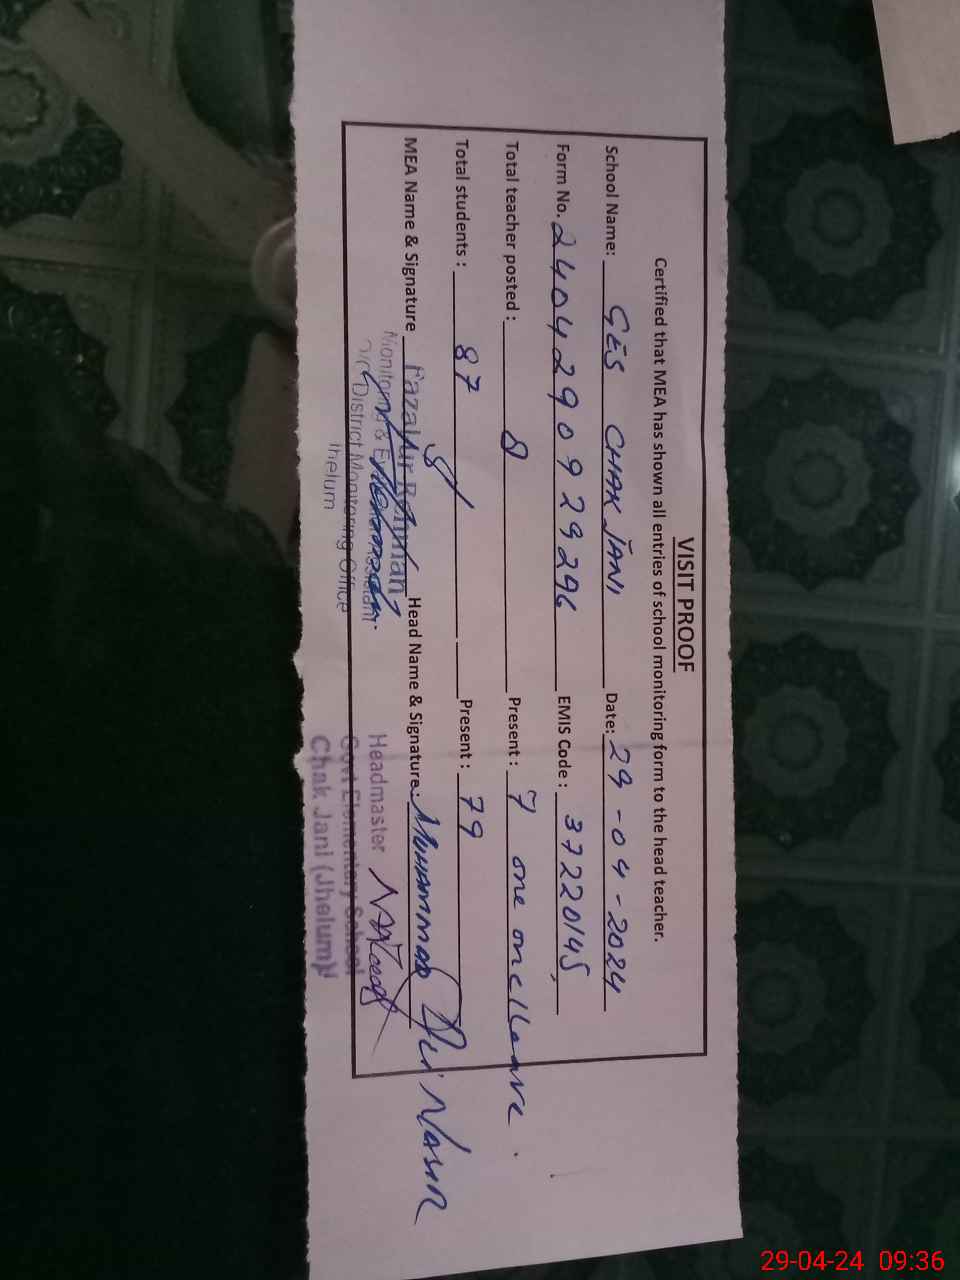 VISIT PROOF
Certified that MEA has shown all entries of school monitoring form to the head teacher.
School Name: GES CHAK JANI Date: 29-04-2024
Form No. 240429092929 6 EMIS Code: 37220145
Total teacher posted: 8 Present: 7 one on c/leave.
Total students: 87 Present: 79
MEA Name & Signature Fazal ur Rehman Head Name & Signature: MUHAMMAD Nasir
Monitoring & Assistant Headmaster
District Monitoring Office Govt Elementary School
Jhelum Chak Jani (Jhelum)
29-04-24 09:36